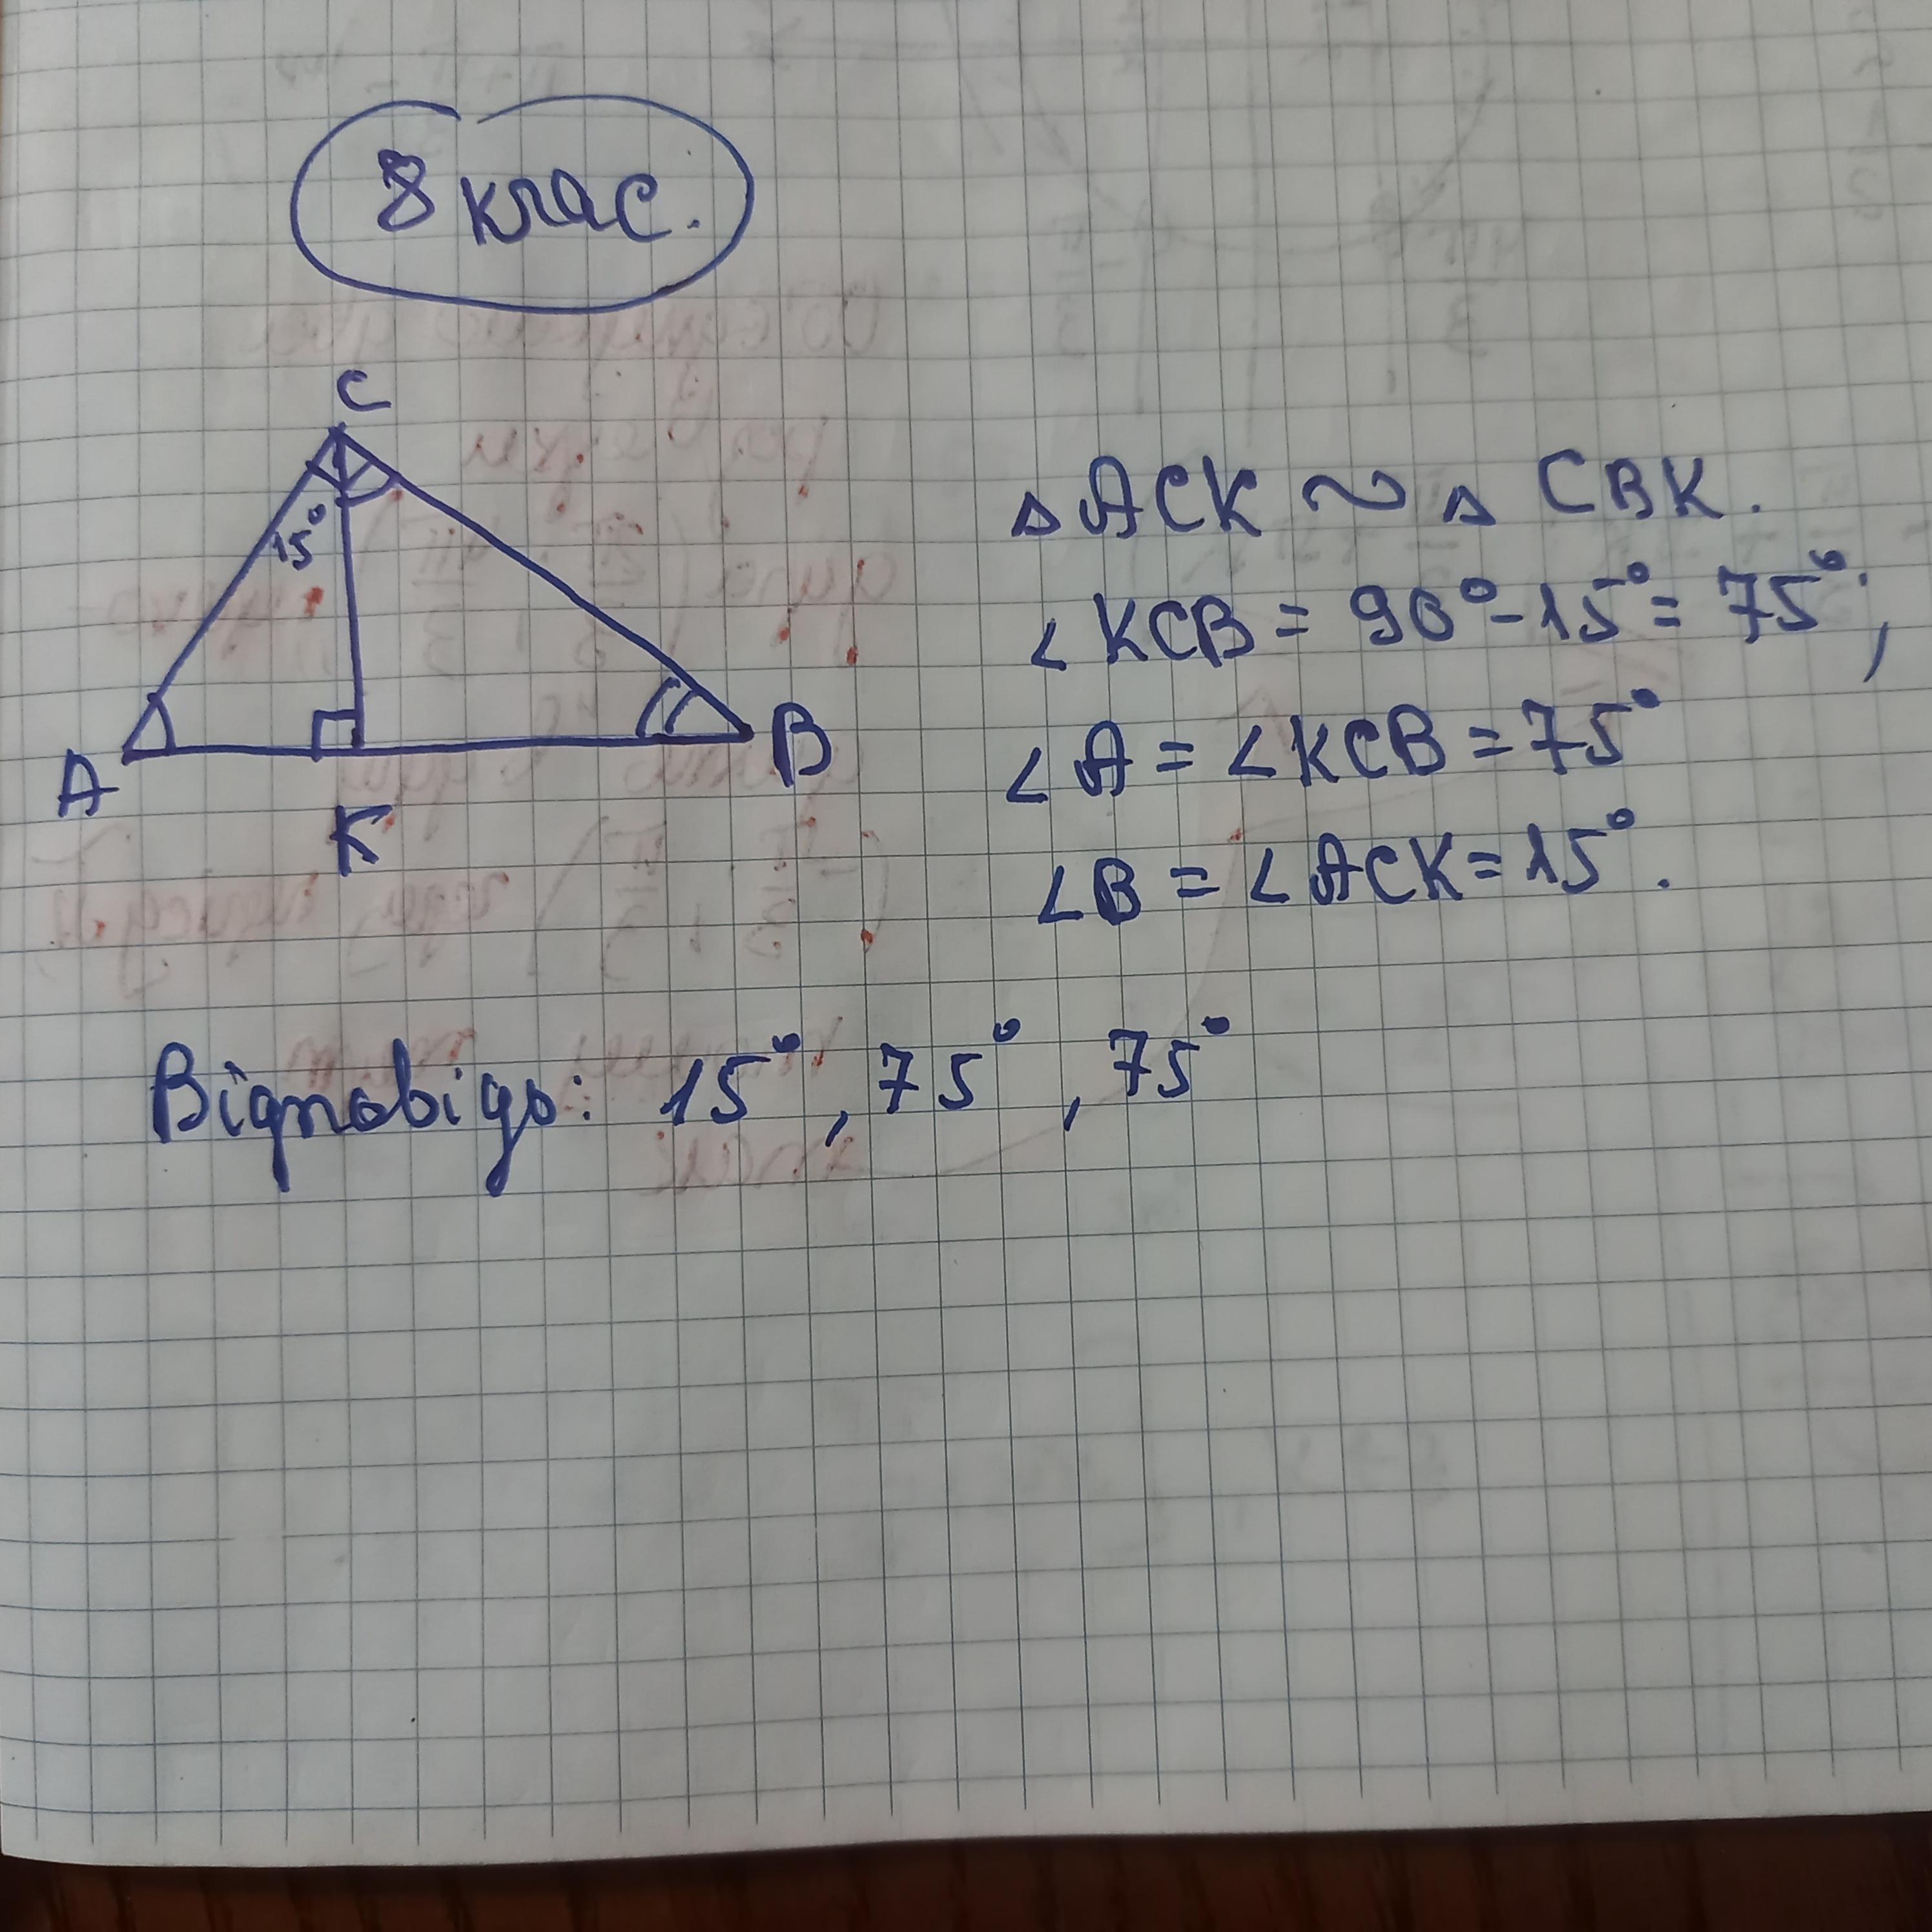 8 клас.
C
15°
A
B
K
△ ACK ~ △ CBK.
∠ KCB = 90° - 15° = 75°;
∠ A = ∠ KCB = 75°
∠ B = ∠ ACK = 15°.
Відповідь: 15°, 75°, 75°